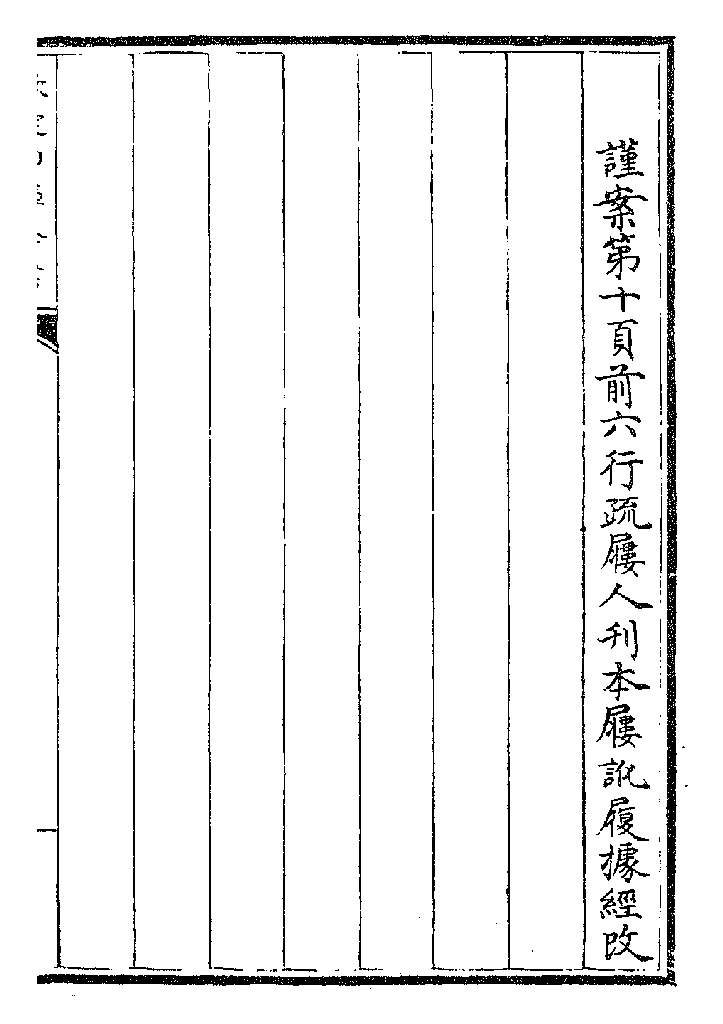 謹案第十頁前六行疏屨人刊本屨訛履據經改